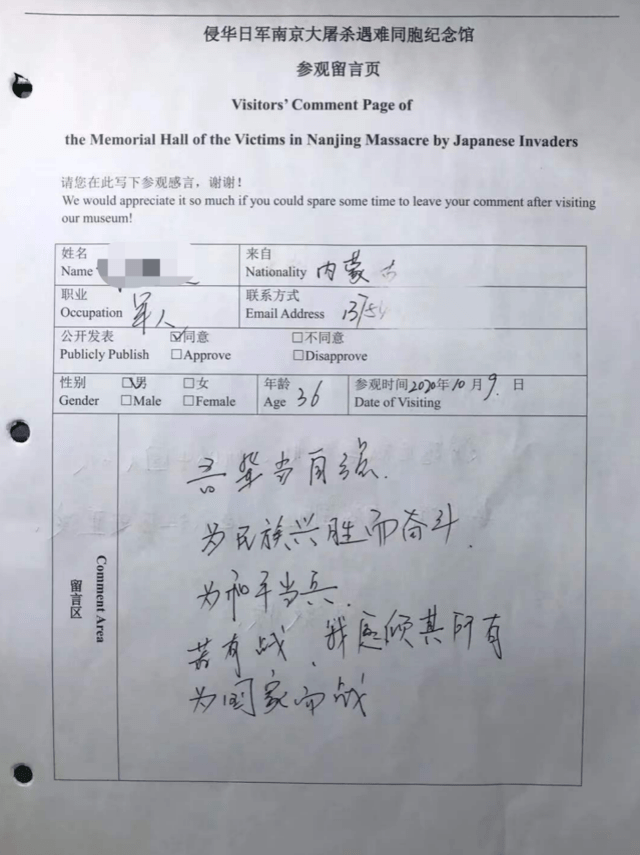 侵华日军南京大屠杀遇难同胞纪念馆
参观留言页
Visitors' Comment Page of
the Memorial Hall of the Victims in Nanjing Massacre by Japanese Invaders
请您在此写下参观感言，谢谢！
We would appreciate it so much if you could spare some time to leave your comment after visiting
our museum!
姓名 来自
Name Nationality 内蒙古
职业 联系方式
Occupation 军人 Email Address
公开发表 ☑同意 □不同意
Publicly Publish □Approve □Disapprove
性别 ☑男 □女 年龄 参观时间2020年10月9日
Gender □Male □Female Age 36 Date of Visiting
留言区 Comment Area
吾辈当自强.
为民族兴胜而奋斗.
为和平当兵.
若有战，我愿倾其所有
为国家而战